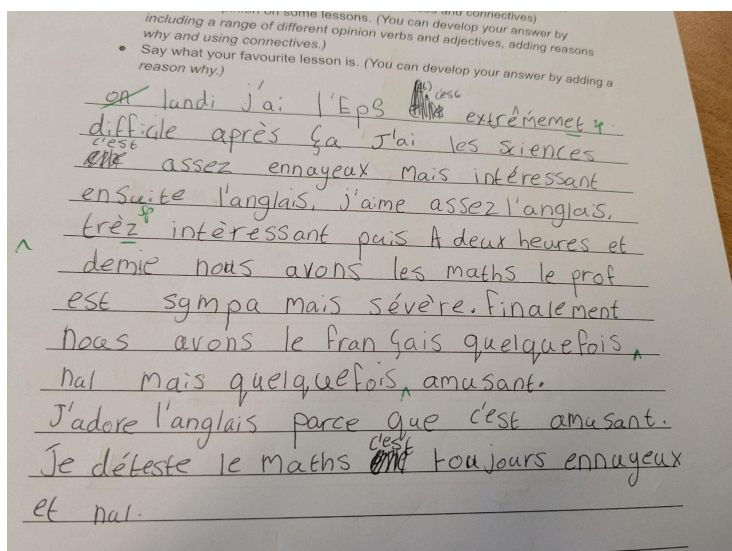 opinion on some lessons. (You can develop your answer by
including a range of different opinion verbs and adjectives, adding reasons
why and using connectives.)
• Say what your favourite lesson is. (You can develop your answer by adding a
reason why.)
c'est
on lundi j'ai l'Eps extrêmemet sp
difficle après ça J'ai les sciences
c'est
assez ennayeux mais intéressant
ensuite l'anglais, j'aime assez l'anglais,
trèz sp intèressant puis A deux heures et
demie nous avons les maths le prof
est sympa mais sévère. Finalement
nous avons le français quelquefois
nal mais quelquefois amusant.
J'adore l'anglais parce que c'est amusant.
c'est
Je déteste le maths toujours ennuyeux
et nal.